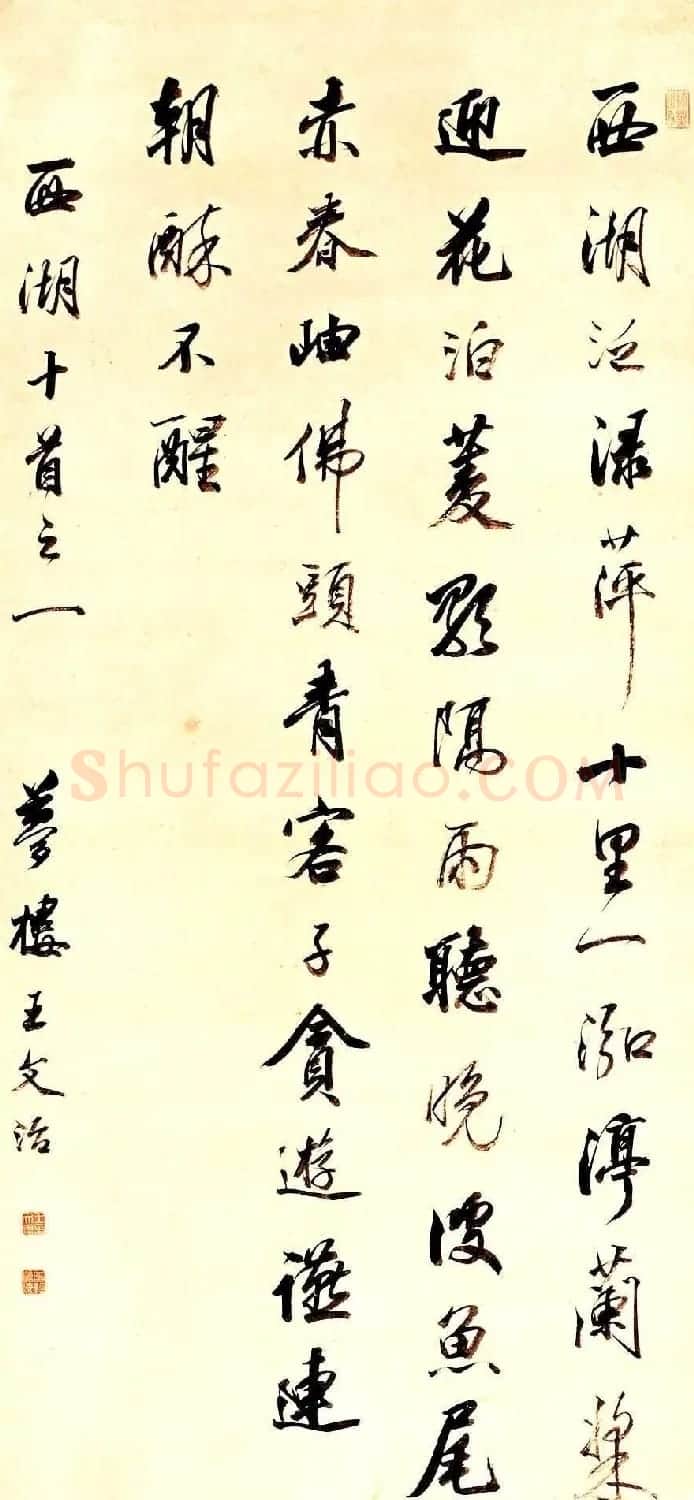 西湖泛渌萍十里一泓渟蘭槳
迎花泊菱歌隔雨聽晚波魚尾
赤春岫佛頭青客子貪遊讌連
朝醉不醒
西湖十首之一 夢樓王文治
Shufaziliao.COM